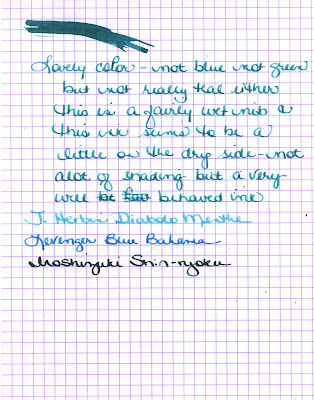 Lovely color - not blue not green
but not really teal either
this is a fairly wet nib &
this ink seems to be a
little on the dry side - not
alot of shading but a very
well behaved ink
J. Herbin Diabolo Menthe
Levenger Blue Bahama
Moshizuki Shin-ryoku